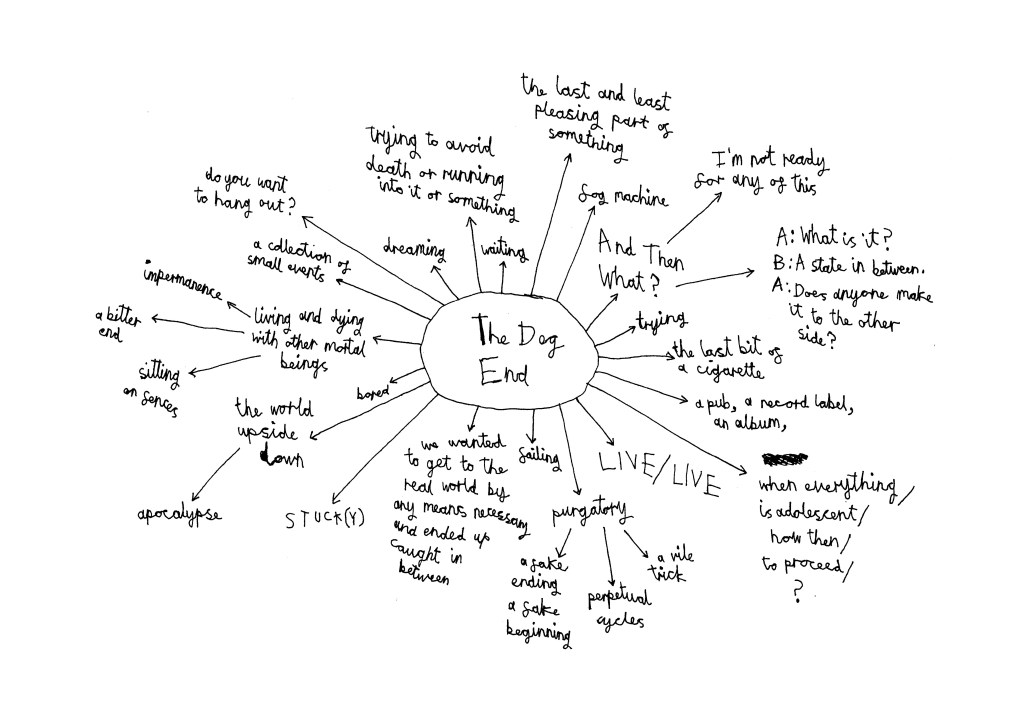 The Dog
End
the last and least
pleasing part of
something
fog machine
And Then
What?
I'm not ready
for any of this
A: What is it?
B: A state in between.
A: Does anyone make
it to the other
side?
trying
the last bit of
a cigarette
a pub, a record label,
an album,
when everything/
is adolescent/
how then/
to proceed/
?
LIVE/LIVE
purgatory
a vile
trick
perpetual
cycles
a fake
ending
a fake
beginning
failing
we wanted
to get to the
real world by
any means necessary
and ended up
caught in
between
STUCK(Y)
the world
upside
down
apocalypse
bored
living and dying
with other mortal
beings
sitting
on fences
a bitter
end
impermanence
a collection of
small events
do you want
to hang out?
dreaming
trying to avoid
death or running
into it or something
waiting